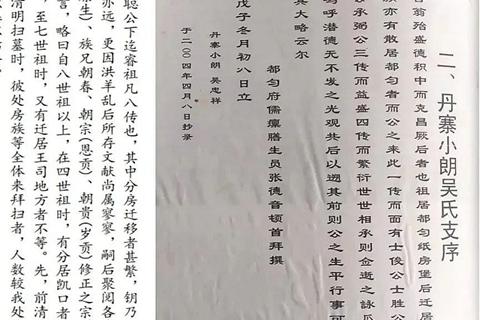 二、丹寨小朗吴氏支序
翁殆盛德积中而克昌厥后者也祖居都匀纸房堡后迁居
族亦有散居都匀者而公之来此一传而面有士俊公士胜公
以承弼公三传而益盛四传而繁衍世世相承则金逊之詠瓜
呜呼潜德无不发之光观共后以遡其前则公之生平行事可
其大略云尔
都匀府儒廪膳生员张德音顿首拜撰
戊子冬月初八日立
丹寨小朗 吴忠祥
于二〇〇四年四月八日抄录
聪公下迄睿祖凡八传也，其中分房迁移者甚繁，钥乃
亦远，更因洪羊乱后所存文献尚属寥寥，嗣后聚阅各
生）、族兄朝春、朝宗（恩贡）、朝贵（岁贡）修正之宗
言，略曰自八世祖以上，在四世祖时，有分居凯口者
，至七世祖时，又有迁居王司地方者不等。先，前清
清明扫墓时，彼处房族等全体来拜扫者，人数较我处